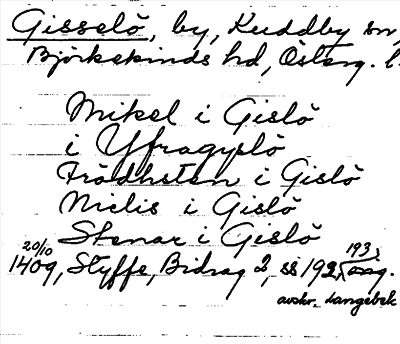 Gisselö, by, Kuddby sn,
Björkekinds hd, Österg. l.
Mikel i Gislö
i Yfragyslö
Frödhsten i Gislö
Niclis i Gislö
Stenar i Gislö
20/10 193,
1409, Styffe, Bidrag 2, ss 192,
avskr. Langebek